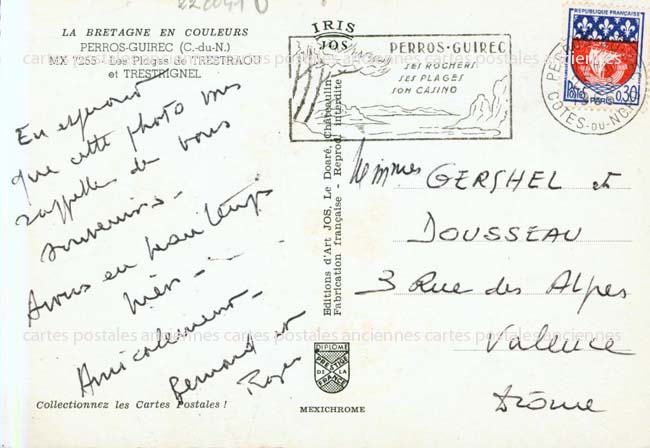 222041 U
LA BRETAGNE EN COULEURS
PERROS-GUIREC (C.-du-N.)
MX 7255 - Les Plages de TRESTRAOU
et TRESTRIGNEL
En espérant
que cette photo vous
rappelle de bons
souvenirs -
Avons eu beau temps
hier -
Amicalement -
Bernard et
Roger
Collectionnez les Cartes Postales !
IRIS
JOS
PERROS-GUIREC
SES ROCHERS
SES PLAGES
SON CASINO
Editions d'Art JOS, Le Doaré, Châteaulin
Fabrication française - Reprod. interdite
DIPLOME
PRESTIGE
DE LA
FRANCE
MEXICHROME
REPUBLIQUE FRANÇAISE
Postes 0,30
PARIS
COTES-DU-NORD
GERSHEL et
DOUSSEAU
3 Rue des Alpes
Valence
Drôme
cartes postales anciennes cartes postales anciennes cartes postales anciennes